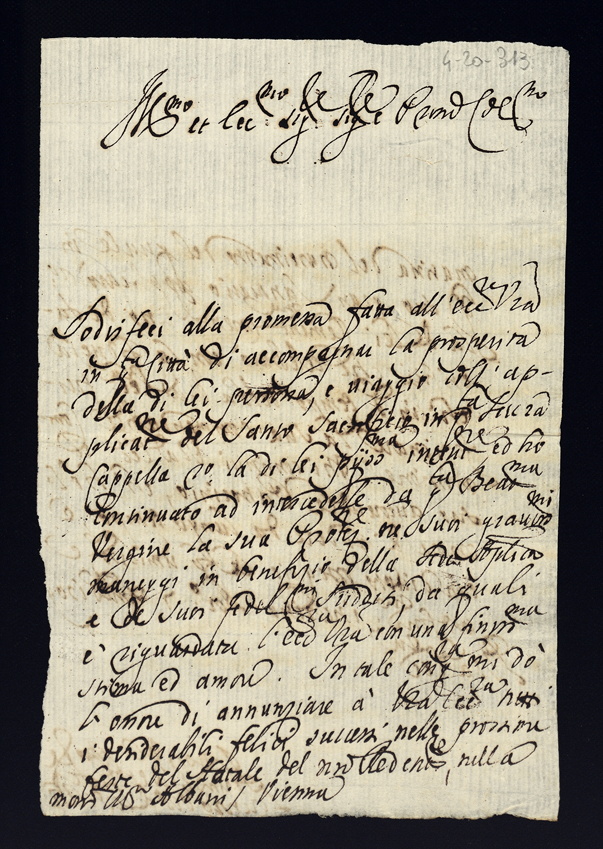 4-20-313
Ill.mo et Ecc.mo Sig.re Sig.re Pron Col.mo
Sodisfeci alla promessa fatta all'ecc.za Vra
in q.ta Città di accompagnar la prosperità
della di lei persona, e viaggio coll'ap-
plicat.ne del Santo Sacrificio in q.ta Sacra
Cappella co la di lei ... ed ho
continuato ad intercedere da q.ta Beat.ma
Vergine la sua ... ne suoi gravis.mi
maneggi in benefizio della Sede Aplica
e de suoi fedel.mi sudditi, da quali
è riguardata l'ecc.za Vra con una finis.ma
stima ed amore. In tale cong.ra mi dò
l'onore di annunziare à Vra Ecc.za tutti
i desiderabili felici successi nelle prossime
feste del Natale del nro Redent.e, nella
mons.r Albani / Vienna